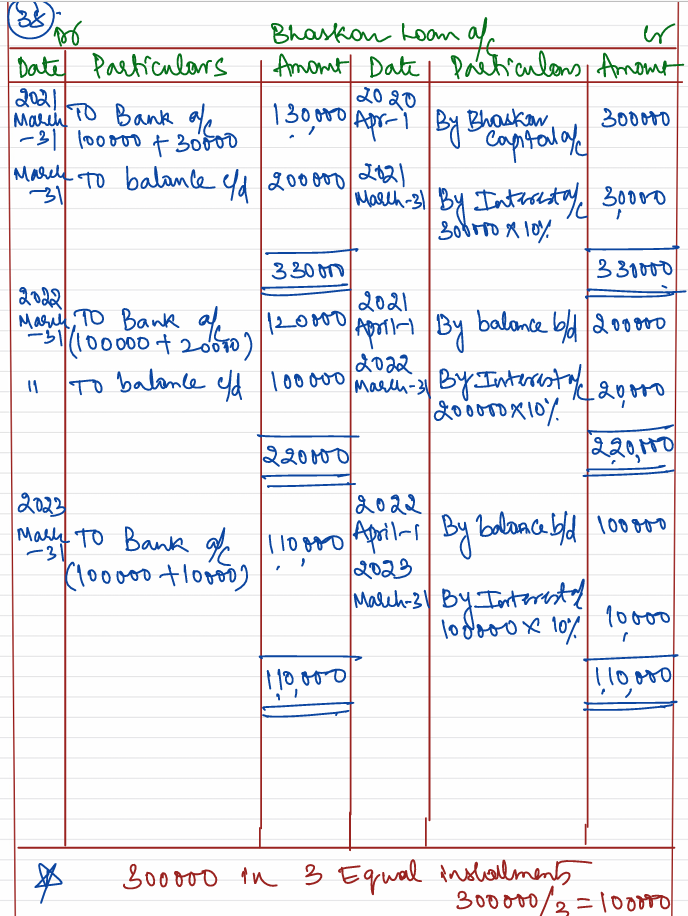 38
Dr Bhaskar Loan a/c Cr
Date Particulars Amount Date Particulars Amount
2021 March-31 To Bank a/c 130,000 2020 Apr-1 By Bhaskar Capital a/c 300000
100000 + 30000
March-31 To balance c/d 200000 2021 March-31 By Interest a/c 30,000
300000 x 10%
330000 330000
2022 March-31 To Bank a/c 120000 2021 April-1 By balance b/d 200000
(100000 + 20000)
" To balance c/d 100000 2022 March-31 By Interest a/c 20,000
200000 x 10%
220000 220,000
2023 March-31 To Bank a/c 110,000 2022 April-1 By balance b/d 100000
(100000 + 10000)
2023 March-31 By Interest a/c 10,000
100000 x 10%
110,000 110,000
300000 in 3 Equal installments
300000/3 = 100000